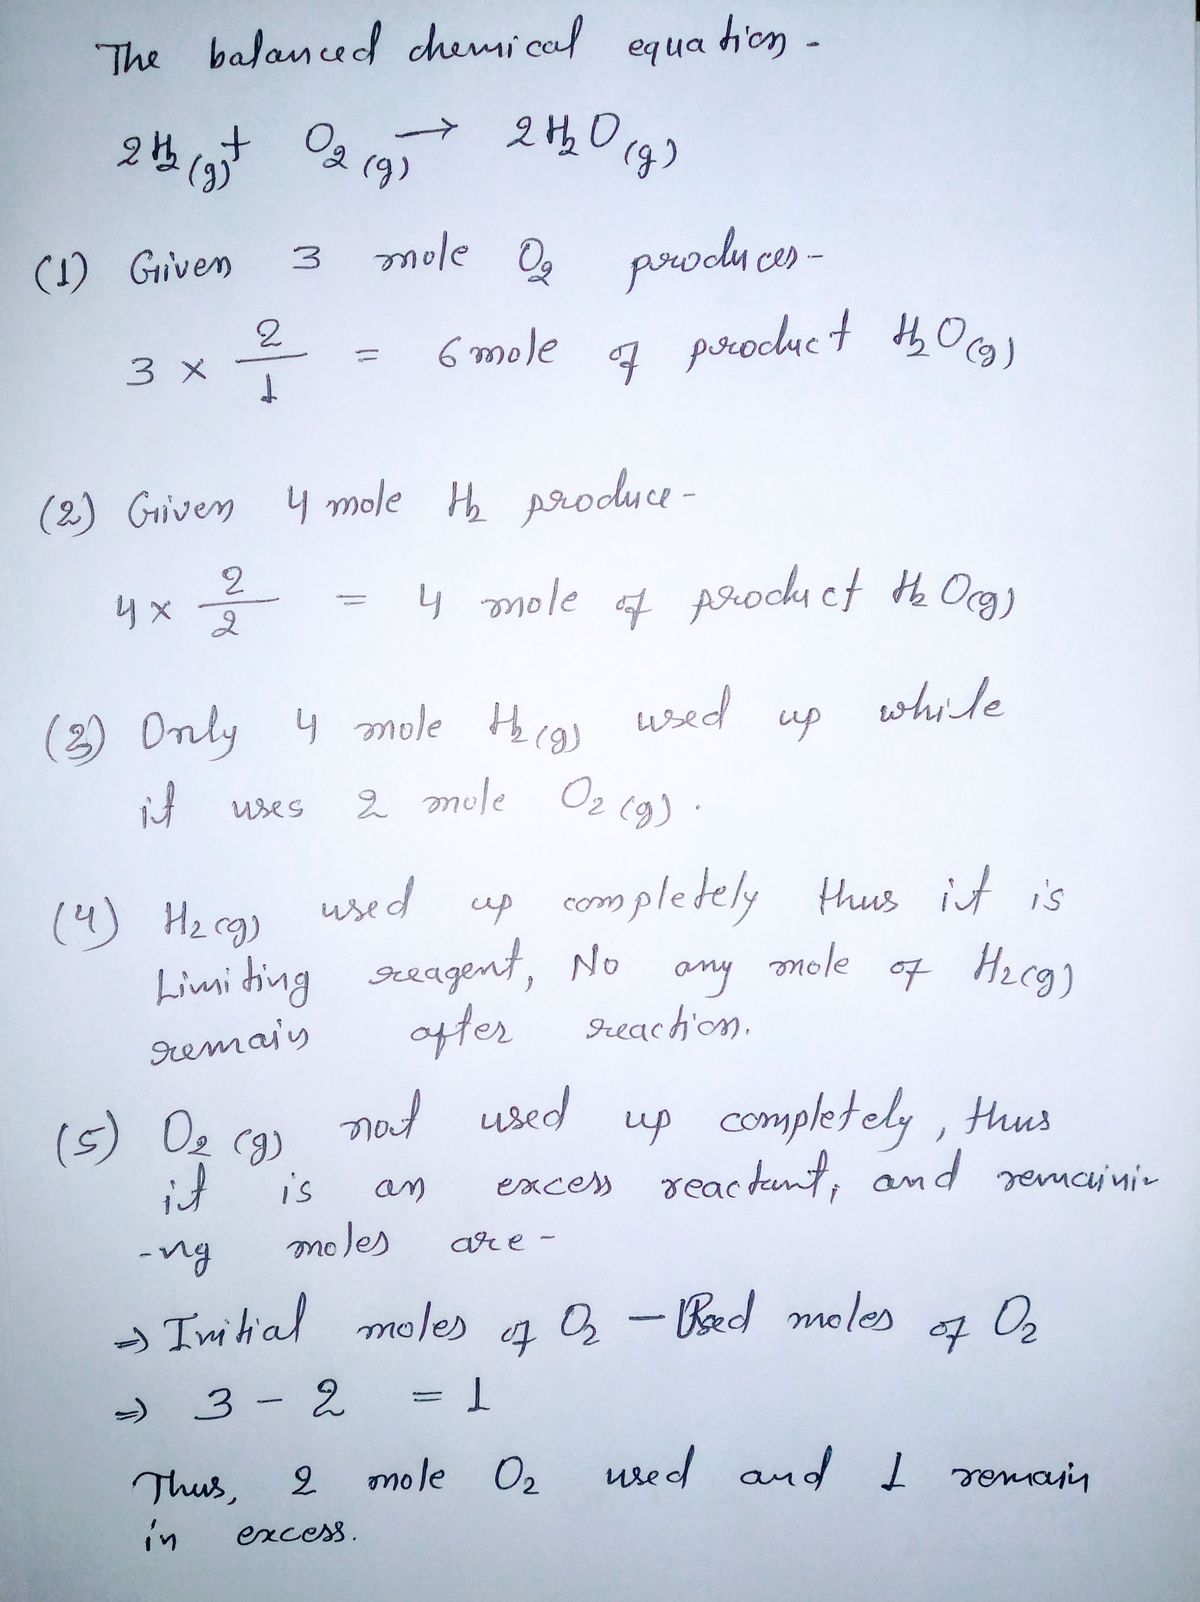 The balanced chemical equation -
2H₂(g) + O₂(g) → 2H₂O(g)
(1) Given 3 mole O₂ produces -
3 × 2/1 = 6 mole of product H₂O(g)
(2) Given 4 mole H₂ produce -
4 × 2/2 = 4 mole of product H₂O(g)
(3) Only 4 mole H₂(g) used up while
it uses 2 mole O₂(g).
(4) H₂(g) used up completely thus it is
Limiting reagent, No any mole of H₂(g)
remain after reaction.
(5) O₂(g) not used up completely, thus
it is an excess reactant, and remaini-
-ng moles are -
⇒ Initial moles of O₂ - Used moles of O₂
⇒ 3 - 2 = 1
Thus, 2 mole O₂ used and 1 remain
in excess.